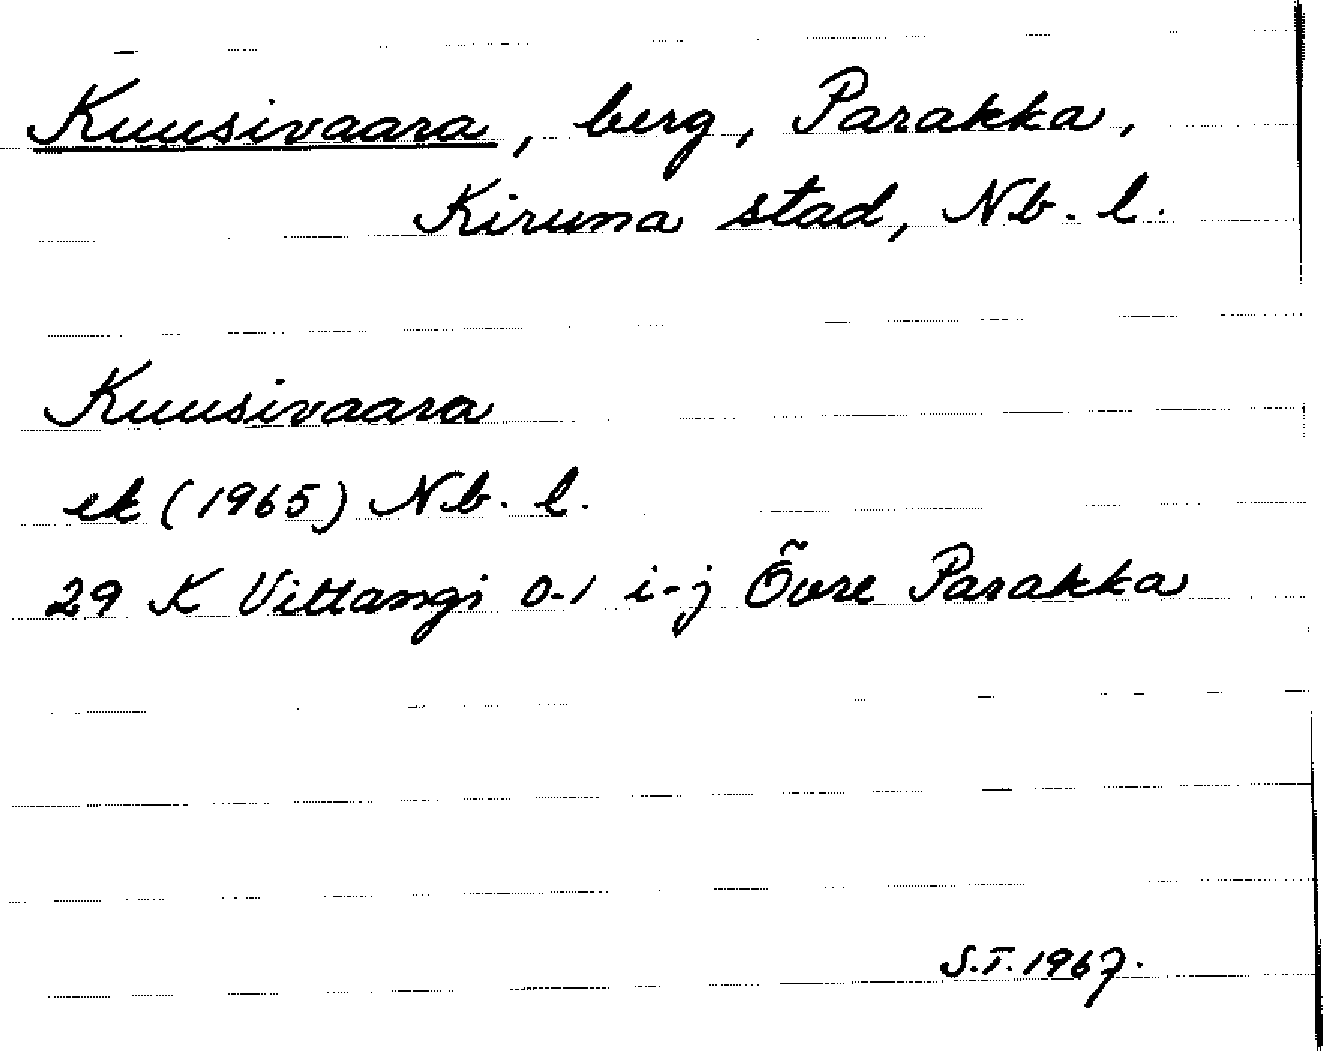 Kuusivaara, berg, Parakka,
Kiruna stad, Nb. l.
Kuusivaara
ek (1965) Nb. l.
29 K Vittangi 0-1 i-j Övre Parakka
S.T. 1967.